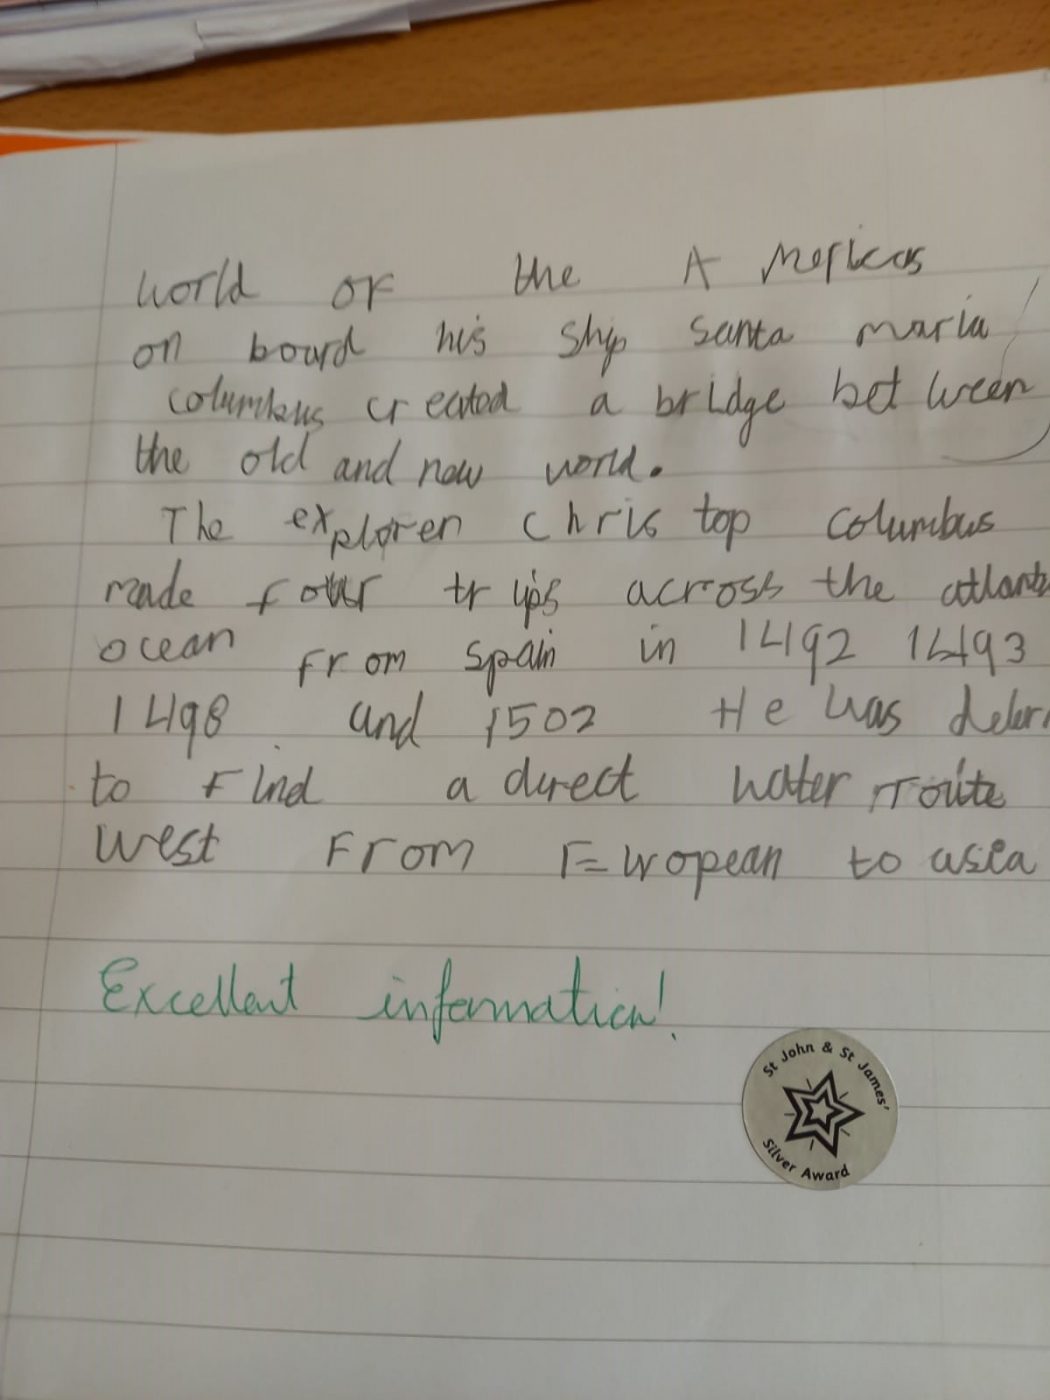 world of the Americas
on board his ship santa maria
columbus created a bridge between
the old and new world.
The explorer Christop columbus
made four trips across the atlant
ocean from spain in 1492 1493
1498 and 1502 He was deter
to find a direct water route
west From European to asia
Excellent information!
St John & St James'
Silver Award